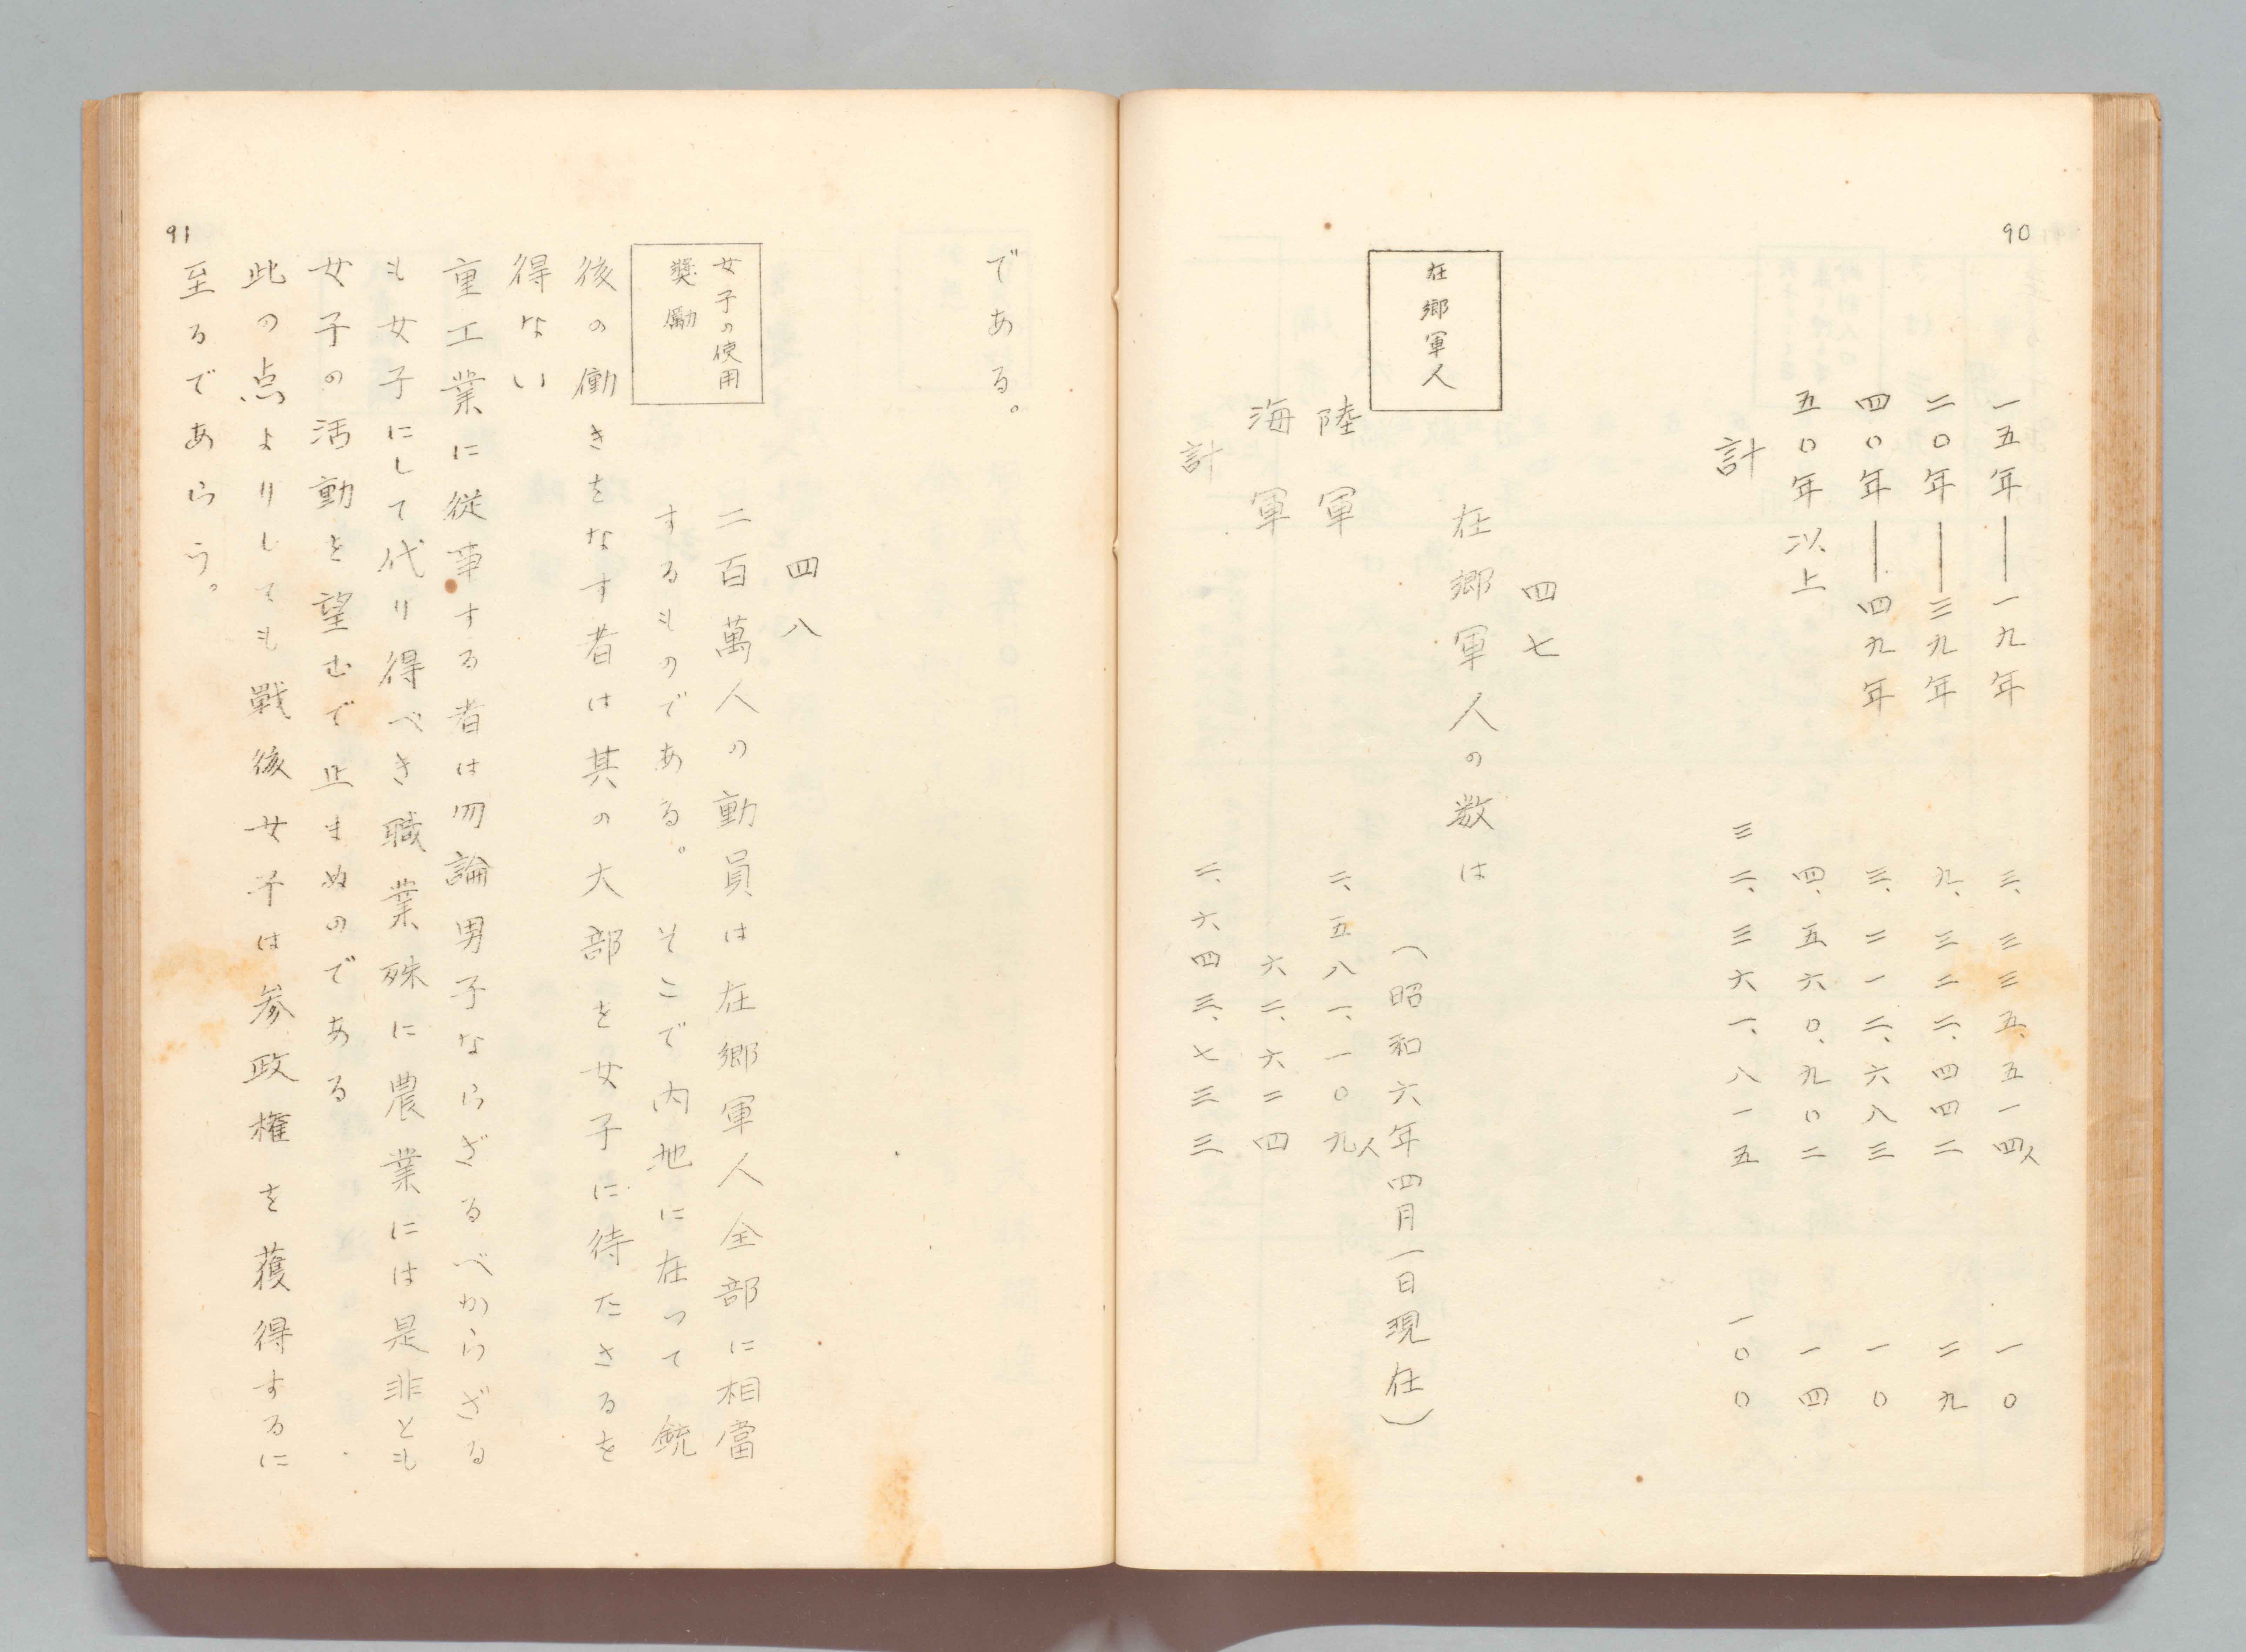 90
一五年――一九年 三、三三五、五一四人 一〇
二〇年――三九年 九、三二二、四四二 二九
四〇年――四九年 三、二一二、六八三 一〇
五〇年以上 四、五六〇、九〇二 一四
計 三二、三六一、八一五 一〇〇
四七
在郷軍人
在郷軍人の数は
(昭和六年四月一日現在)
陸軍 二、五八一、一〇九人
海軍 六二、六二四
計 二、六四三、七三三
である。
四八
女子の使用
奬勵
二百萬人の動員は在郷軍人全部に相當
するものである。そこで内地に在って銃
後の働きをなす者は其の大部を女子に待たさるを
得ない
重工業に従事する者は勿論男子ならざるべからざる
も女子にして代り得べき職業殊に農業には是非とも
女子の活動を望むで止まぬのである
此の点よりしても戰後女子は参政権を獲得するに
至るであらう。
91